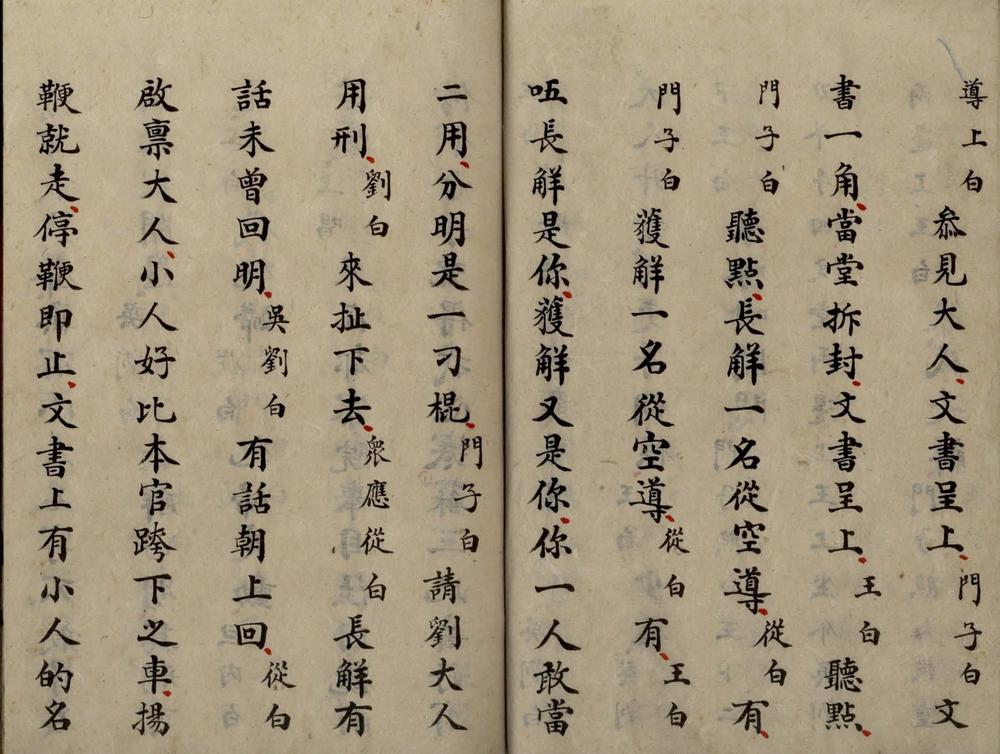 導上白叅見大人文書呈上門子白文
書一角當堂拆封文書呈上王白聽點
門子白聽點長解一名從空導從白有
門子白獲解一名從空導從白有王白
㕶長解是你獲解又是你你一人敢當
二用分明是一刁棍門子白請劉大人
用刑劉白來扯下去衆應從白長解有
話未曾回明吳劉白有話朝上回從白
啟禀大人小人好比本官跨下之車揚
鞭就走停鞭即止文書上有小人的名